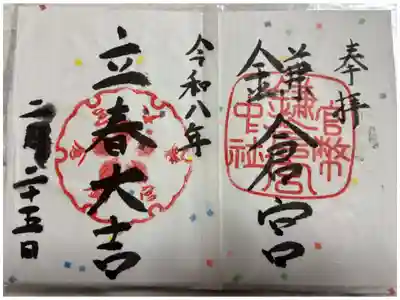 奉拝
鎌倉宮
官幣中社鎌倉宮
令和八年
立春大吉
二月二十五日